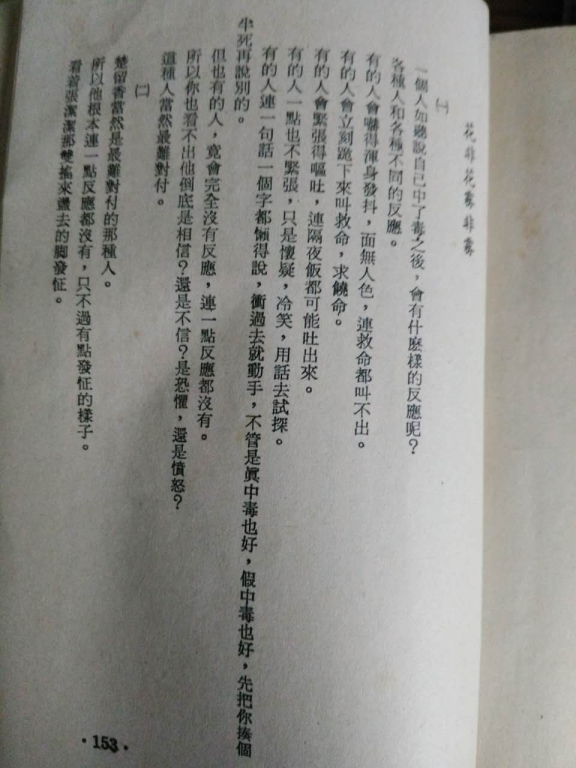 花非花霧非霧
㈠
一個人如聽說自己中了毒之後，會有什麼樣的反應呢？
各種人和各種不同的反應。
有的人會嚇得渾身發抖，面無人色，連救命都叫不出。
有的人會立刻跪下來叫救命，求饒命。
有的人會緊張得嘔吐，連隔夜飯都可能吐出來。
有的人一點也不緊張，只是懷疑，冷笑，用話去試探。
有的人連一句話一個字都懶得說，衝過去就動手，不管是眞中毒也好，假中毒也好，先把你揍個
半死再說別的。
但也有的人，竟會完全沒有反應，連一點反應都沒有。
所以你也看不出他倒底是相信？還是不信？是恐懼，還是憤怒？
這種人當然最難對付。
㈡
楚留香當然是最難對付的那種人。
所以他根本連一點反應都沒有，只不過有點發怔的樣子。
看着張潔潔那雙搖來盪去的脚發怔。
·153·